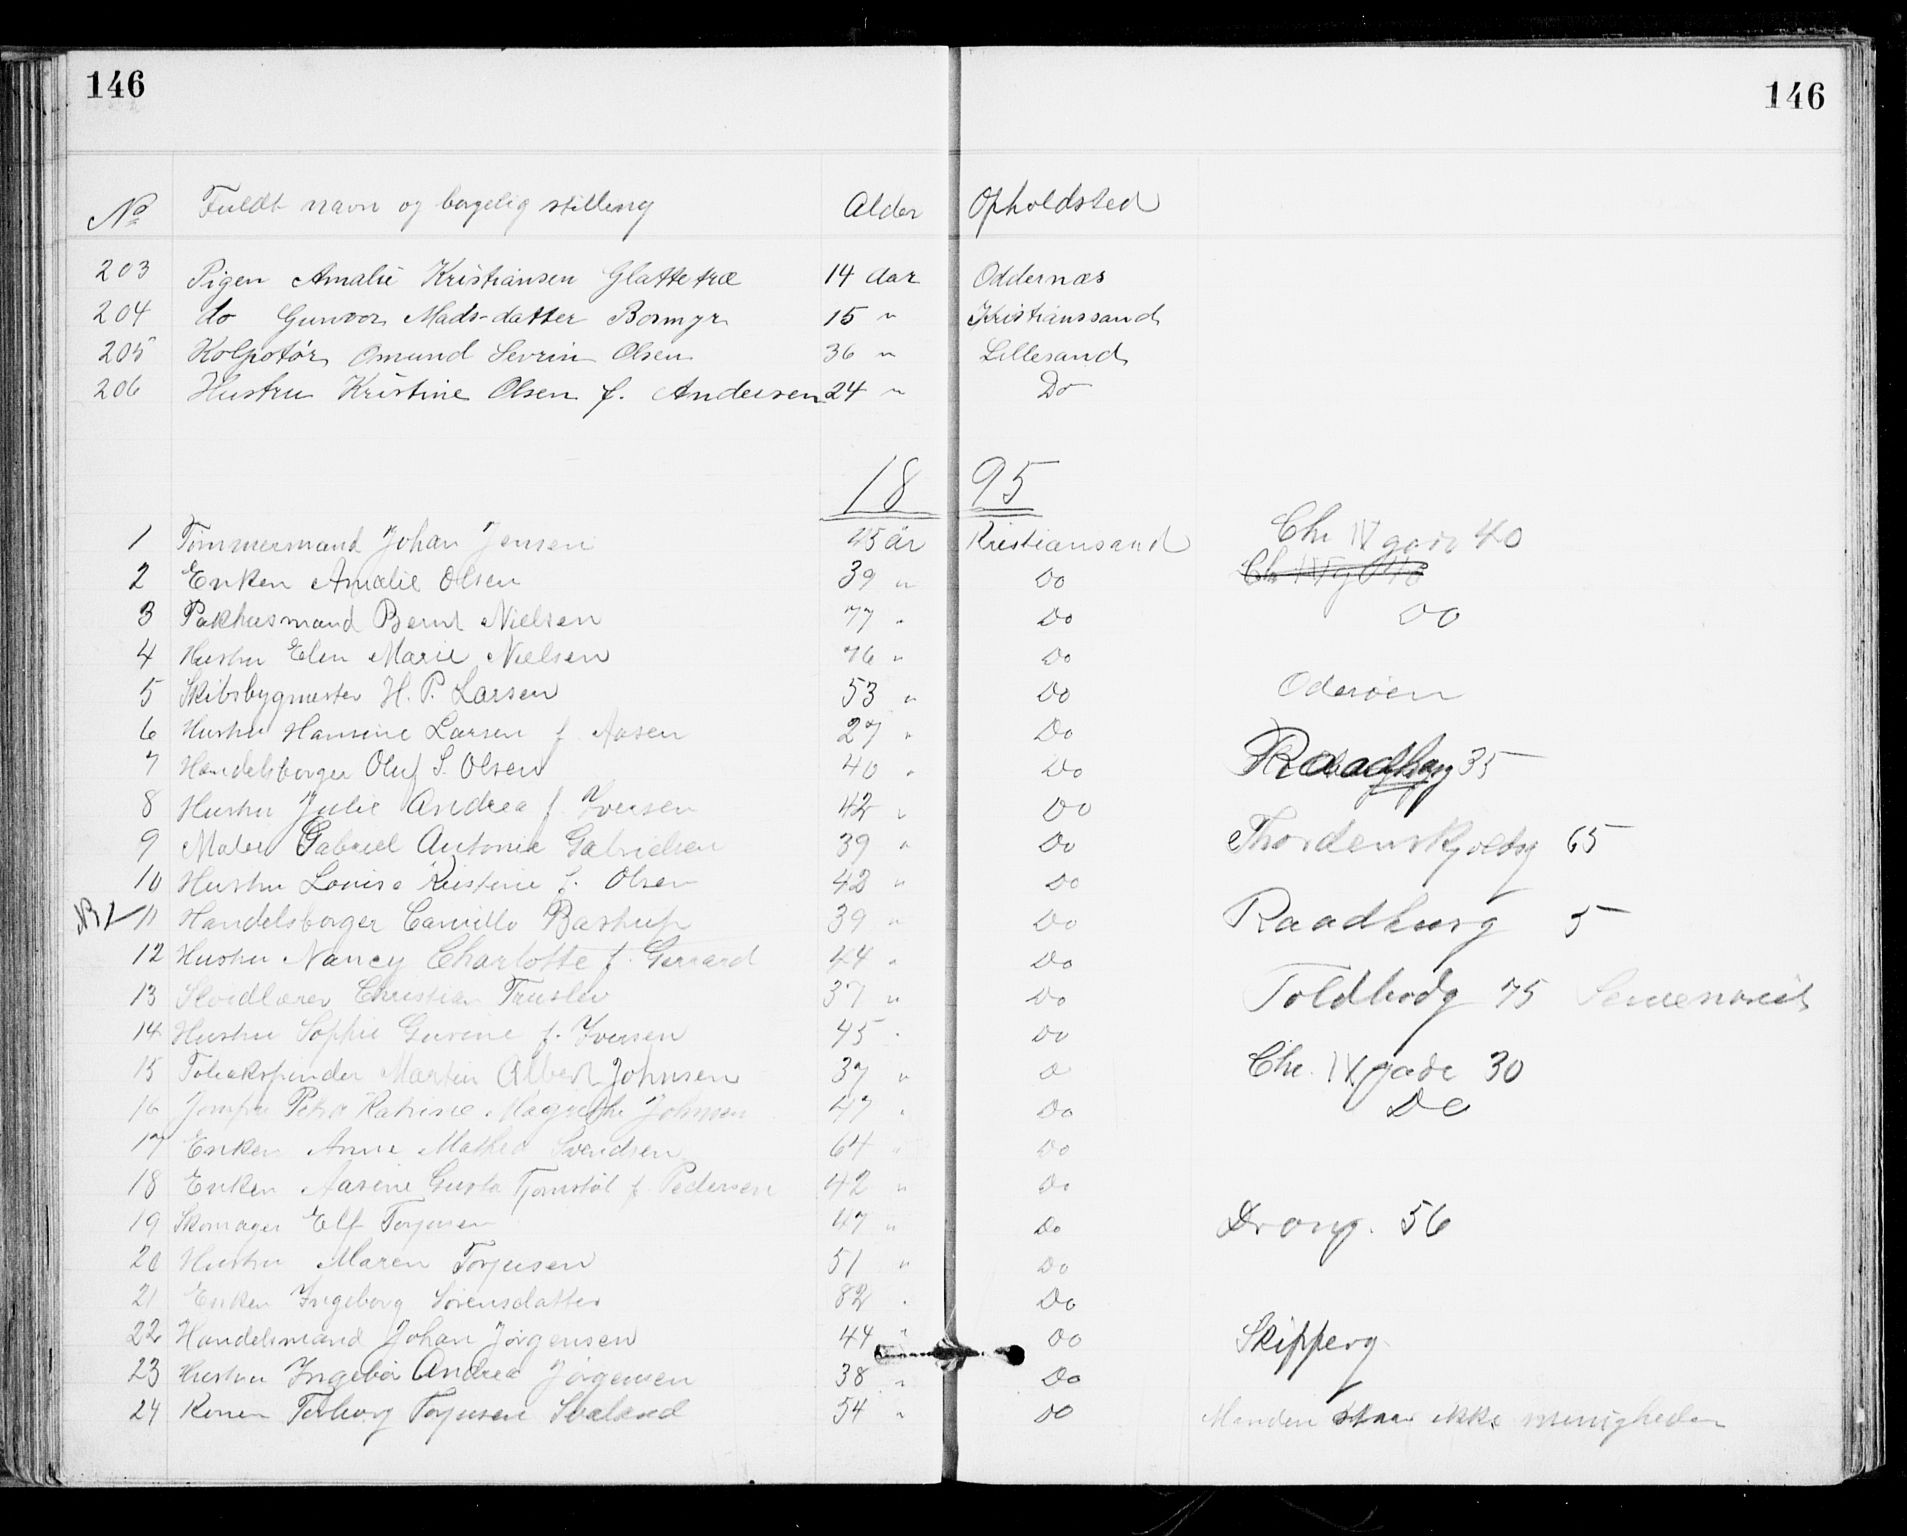 146 146
No Fuldt navn og borgelig stilling Alder Opholdsted
203 Pigen Amalie Kristiansen Glattetræ 14 aar Oddernæs
204 do Gunvor Mads-datter Bosmyr 15 " Kristianssand
205 Kolpotør Omund Sevrin Olsen 36 " Lillesand
206 Hustru Kristine Olsen f. Andersen 24 " Do
18 95
1 Tømmermand Johan Jensen 45 år Kristiansand Chr IV gade 40
2 Enken Amalie Olsen 39 " Do
3 Pakhusmand Bernt Nielsen 77 " Do Do
4 Hustru Elen Marie Nielsen 76 " Do
5 Skibsbygmester H. P. Larsen 53 " Do Oderøen
6 Hustru Hansine Larsen f. Aasen 27 " Do
7 Handelsborger Oluf S. Olsen 40 " Do Raadhusg 35
8 Hustru Julie Andrea f. Iversen 42 " Do
9 Maler Gabriel Antonie Gabrielsen 39 " Do Thordenskjoldsg 65
10 Hustru Louise Kristine f. Olsen 42 " Do
NB 11 Handelsborger Camillo Bastrup 39 " Do Raadhusg 5
12 Hustru Nancy Charlotte f. Gerrard 44 " Do
13 Christian Truslev 37 " Do Toldbodg 75
14 Hustru Soppie Gurine f. Iversen 45 " Do
15 Tobakspinder Martin Albert Johnsen 37 " Do Chr. IV gade 30
16 Jomfru Petra Katrine Magrethe Johnsen 47 " Do Do
17 Enken Anne Mathea Svendsen 64 " Do
18 Enken Aasine Gusta Tjomstøl f. Pedersen 42 " Do
19 Skomager Elf Torjusen 47 " Do Drong. 56
20 Hustru Maren Torjusen 51 " Do
21 Enken Ingeborg Sørensdatter 82 " Do
22 Handelsmand Johan Jørgensen 44 " Do Skipperg
23 Hustru Ingebor Andrea Jørgensen 38 " Do
24 Konen Torborg Torjusen 54 " Do Manden staar ikke menigheden